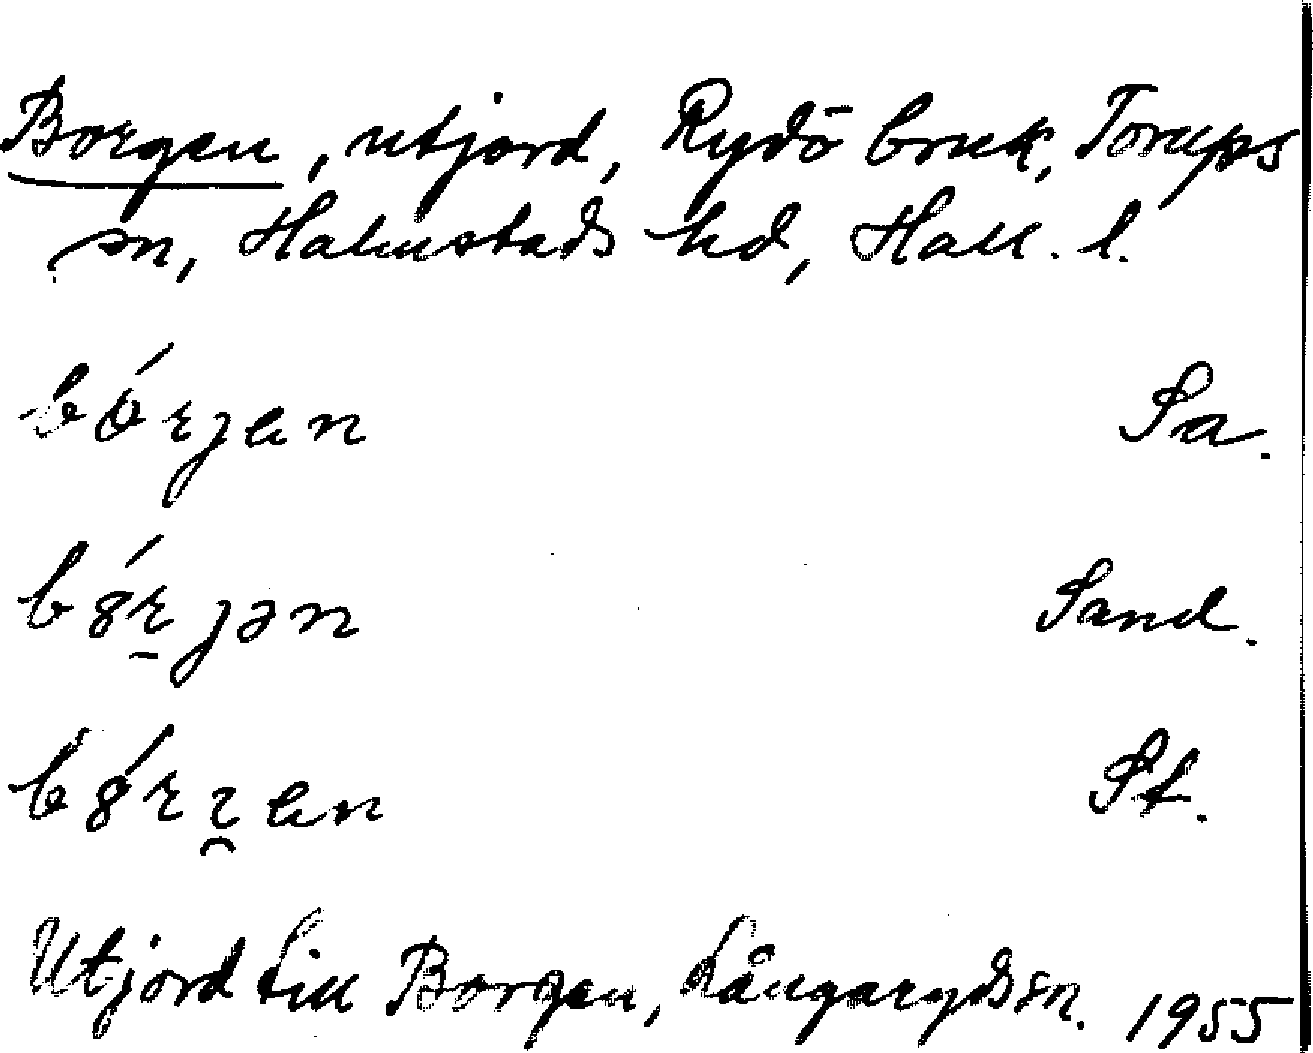 Borgen, utjord, Rydö bruk, Torups
sn, Halmstads hd, Hall. l.
bórjen Sa.
Sand.
St.
Utjord till Borgen, Långaryds sn. 1955